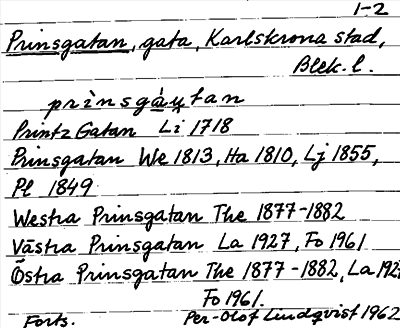 1-2
Prinsgatan, gata, Karlskrona stad,
Blek. l.
prìnsgáu̯tan
Printz Gatan Li 1718
Prinsgatan We 1813, Ha 1810, Lj 1855,
Pl 1849
Westra Prinsgatan The 1877-1882
Västra Prinsgatan La 1927, Fo 1961
Östra Prinsgatan The 1877-1882, La 1927
Fo 1961.
Forts. Per-Olof Lindqvist 1962